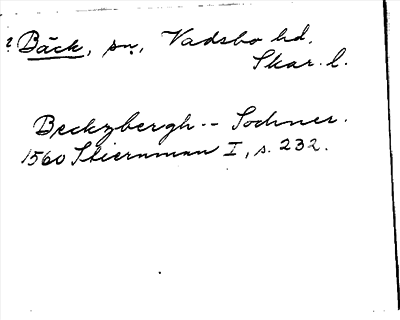 ? Bäck, sn, Vadsbo hd.
Skar. l.
Beckzbergh -- Sochner.
1560 Stiernman I, s. 232.